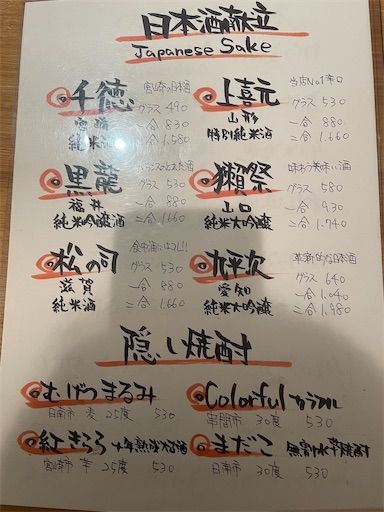 日本酒献立
Japanese Sake
千徳 宮崎の日本酒
宮崎 グラス 490
純米酒 一合 830
二合 1.580
上喜元 当店No.1辛口
山形 グラス 530
特別純米酒 一合 880
二合 1.660
黒龍 バランスのとれた酒
福井 グラス 530
純米吟醸酒 一合 880
二合 1.660
獺祭 味わう美味い酒
山口 グラス 580
純米大吟醸 一合 930
二合 1.740
松の司
滋賀 グラス 530
純米酒 一合 880
二合 1.660
九平次 革新的な日本酒
愛知 グラス 640
純米大吟醸 一合 1.040
二合 1.980
隠し焼酎
むげつまるみ
日南市 麦 25度 530
Colorful カラフル
串間市 30度 530
紅きろろ
宮崎市 芋 25度 530
まだこ 無濾過
日南市 30度 530